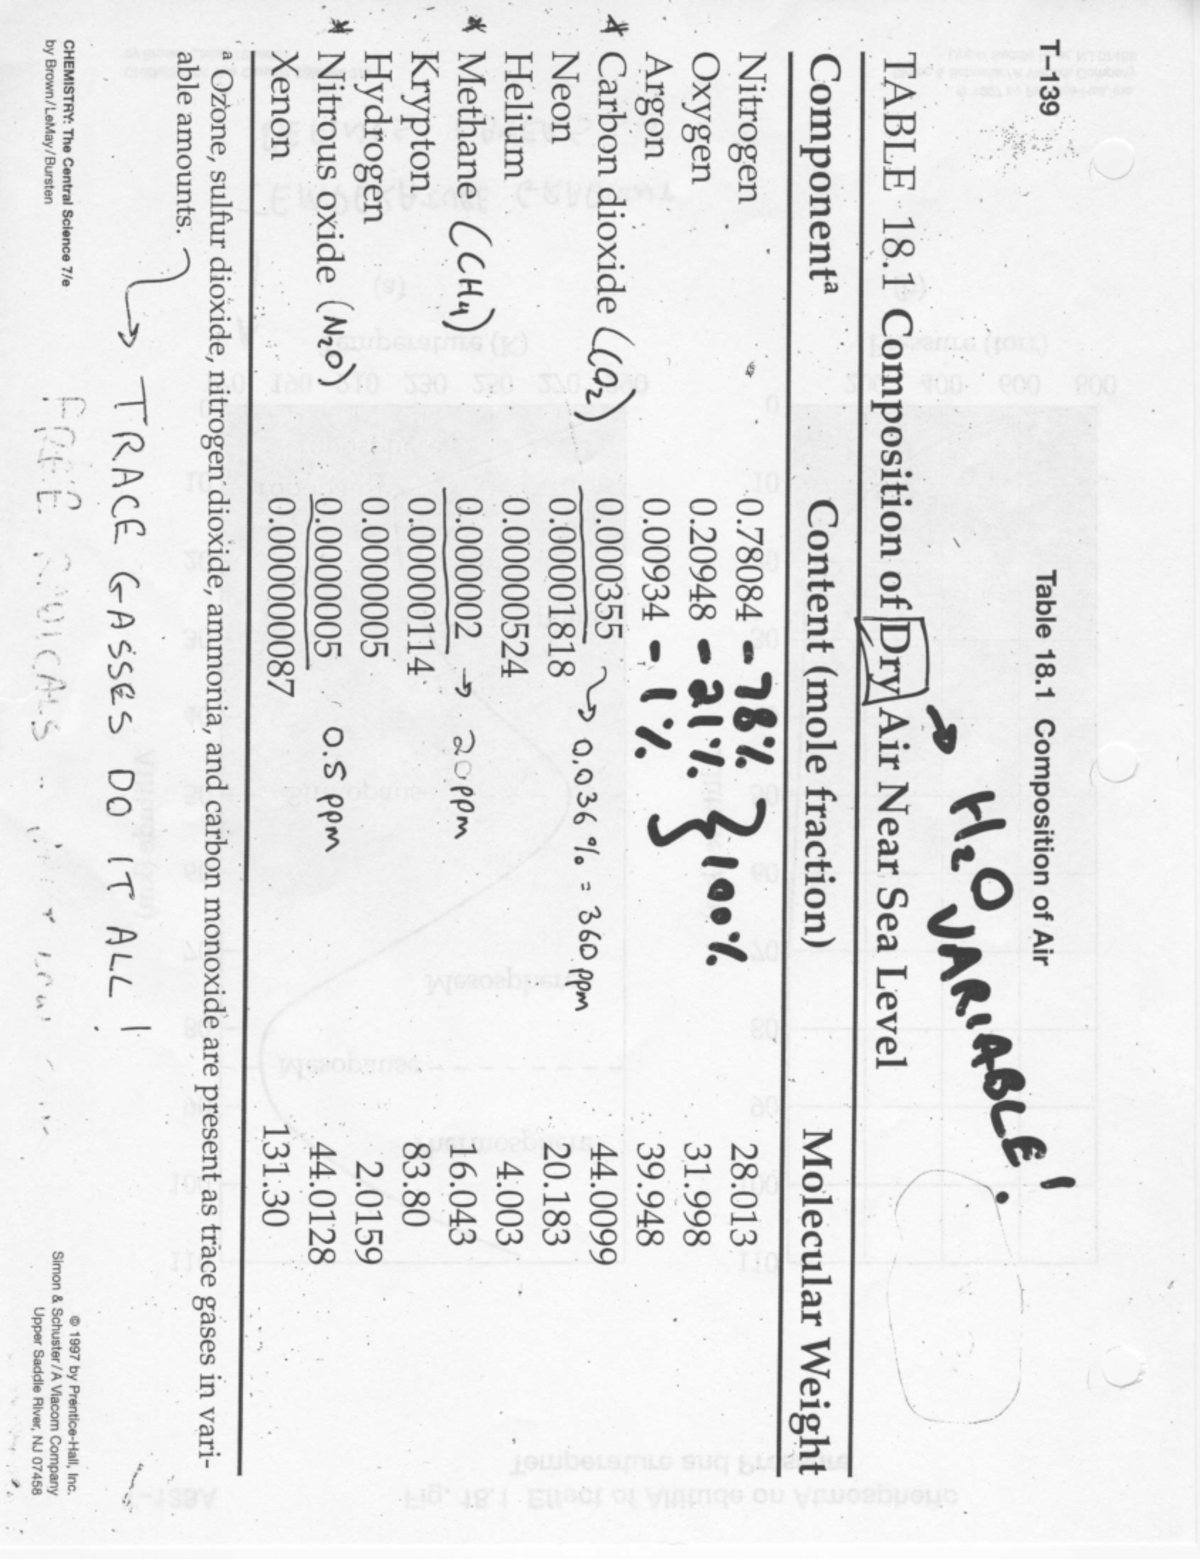 T-139
Table 18.1 Composition of Air
→ H₂O VARIABLE!
TABLE 18.1 Composition of Dry Air Near Sea Level
Componentᵃ Content (mole fraction) Molecular Weight
Nitrogen 0.78084 - 78% 28.013
Oxygen 0.20948 - 21% } 100% 31.998
Argon 0.00934 - 1% 39.948
* Carbon dioxide (CO₂) 0.000355 → 0.036% = 360 ppm 44.0099
Neon 0.00001818 20.183
Helium 0.00000524 4.003
* Methane (CH₄) 0.000002 → 20 ppm 16.043
Krypton 0.00000114 83.80
Hydrogen 0.0000005 2.0159
* Nitrous oxide (N₂O) 0.0000005 0.5 ppm 44.0128
Xenon 0.000000087 131.30
ᵃ Ozone, sulfur dioxide, nitrogen dioxide, ammonia, and carbon monoxide are present as trace gases in vari-
able amounts.
→ TRACE GASSES DO IT ALL!
FREE RADICALS
CHEMISTRY: The Central Science 7/e
by Brown/LeMay/Bursten
© 1997 by Prentice-Hall, Inc.
Simon & Schuster/A Viacom Company
Upper Saddle River, NJ 07458